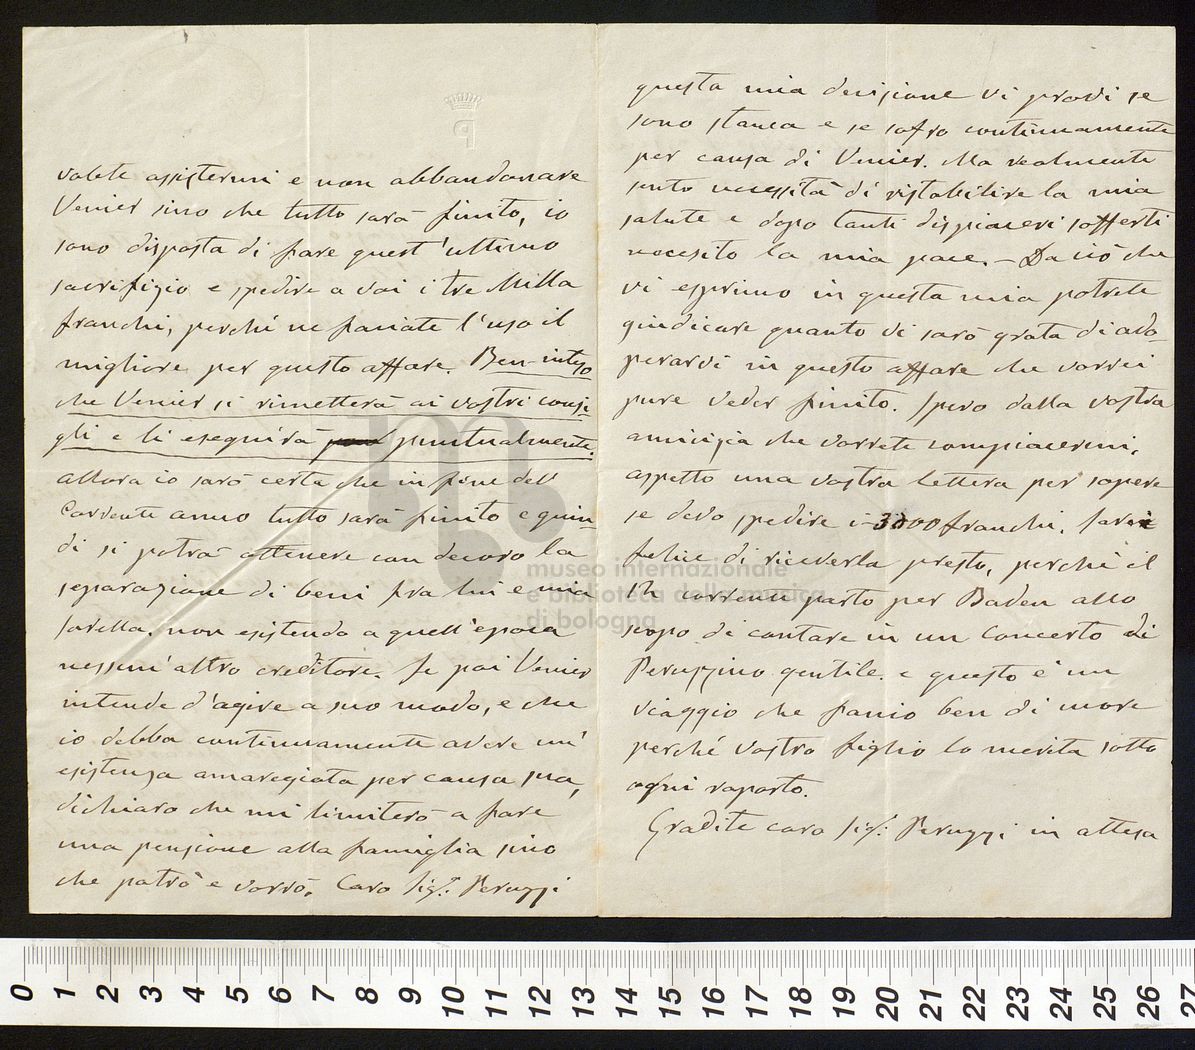 P
volete assistermi e non abbandonare
Venier sino che tutto sarà finito, io
sono disposta di fare quest'ultimo
sacrifizio e spedire a voi i tre Milla
franchi, perché ne facciate l'uso il
migliore per questo affare. Ben-inteso
che Venier si rimetterà ai vostri consi-
gli e li eseguirà puntualmente.
allora io sarò certa che in fine dell
Corrente anno tutto sarà finito e quin-
di si potrà ottenere con decoro la
separazione di beni fra lui e mia
sorella. non esistendo a quell'epoca
nessun'altro creditore. Se poi Venier
intende d'agire a suo modo, e che
io debba continuamente avere un'
esistenza amaregiata per causa sua,
dichiaro che mi limiterò a fare
una pensione alla famiglia sino
che potrò e vorrò. Caro Sigr. Peruzzi
questa mia decisione vi provi se
sono stanca e se sofro continuamente
per causa di Venier. Ma realmente
sento necessità di ristabilire la mia
salute e dopo tanti dispiaceri sofferti
necesito la mia pace. - Da ciò che
vi esprimo in questa mia potrete
giudicare quanto vi sarò grata di ado-
perarvi in questo affare che vorrei
pure veder finito. Spero dalla vostra
amicizia che vorrete compiacermi,
aspetto una vostra lettera per sapere
se devo spedire i 3000 franchi. Sarei
felice di riceverla presto, perchè il
12 corrente parto per Baden allo
scopo di cantare in un Concerto di
Peruzzino gentile. e questo è un
viaggio che faccio ben di core
perché vostro figlio lo merita sotto
ogni raporto.
Gradite caro Sigr: Peruzzi in attesa
museo internazionale
e biblioteca della musica
di bologna
0 1 2 3 4 5 6 7 8 9 10 11 12 13 14 15 16 17 18 19 20 21 22 23 24 25 26 27